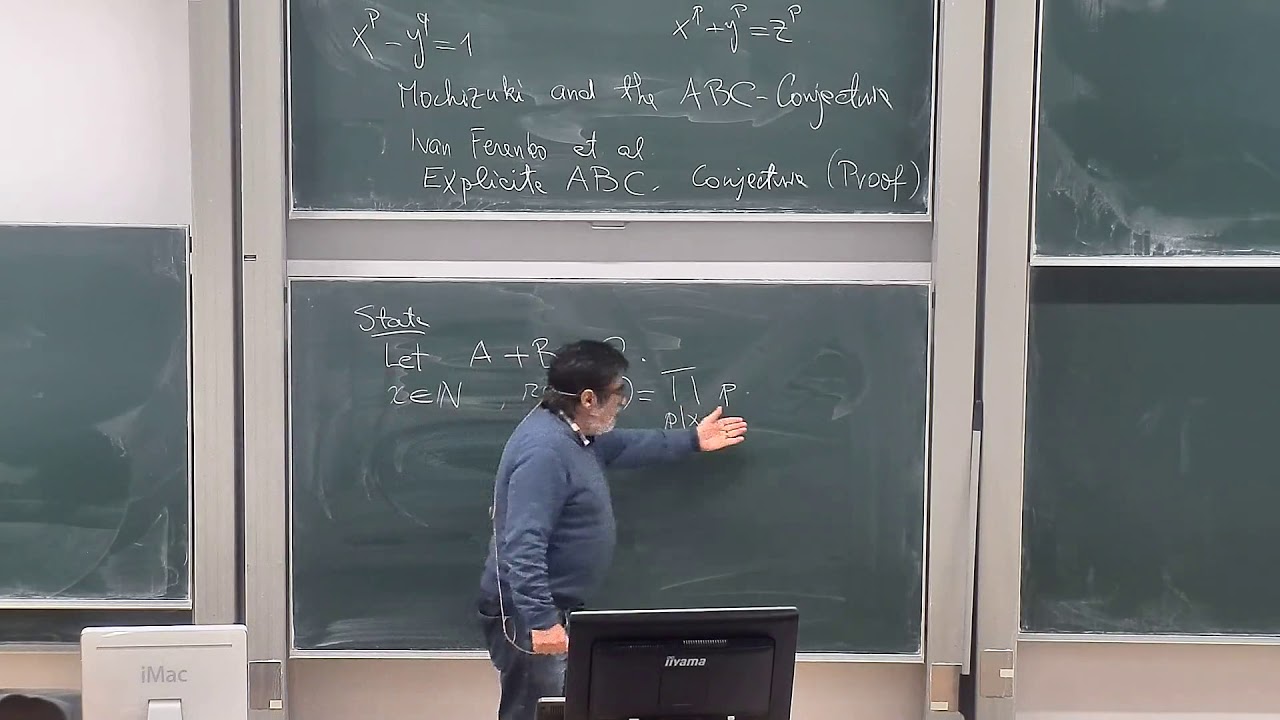 x^p - y^q = 1    x^p + y^p = z^p.
Mochizuki and the ABC-Conjecture
Ivan Ferenko et al.
Explicite ABC. Conjecture (Proof)
State
Let A + B
x ∈ ℕ , ) = ∏ p.
p|x
iMac
iiyama